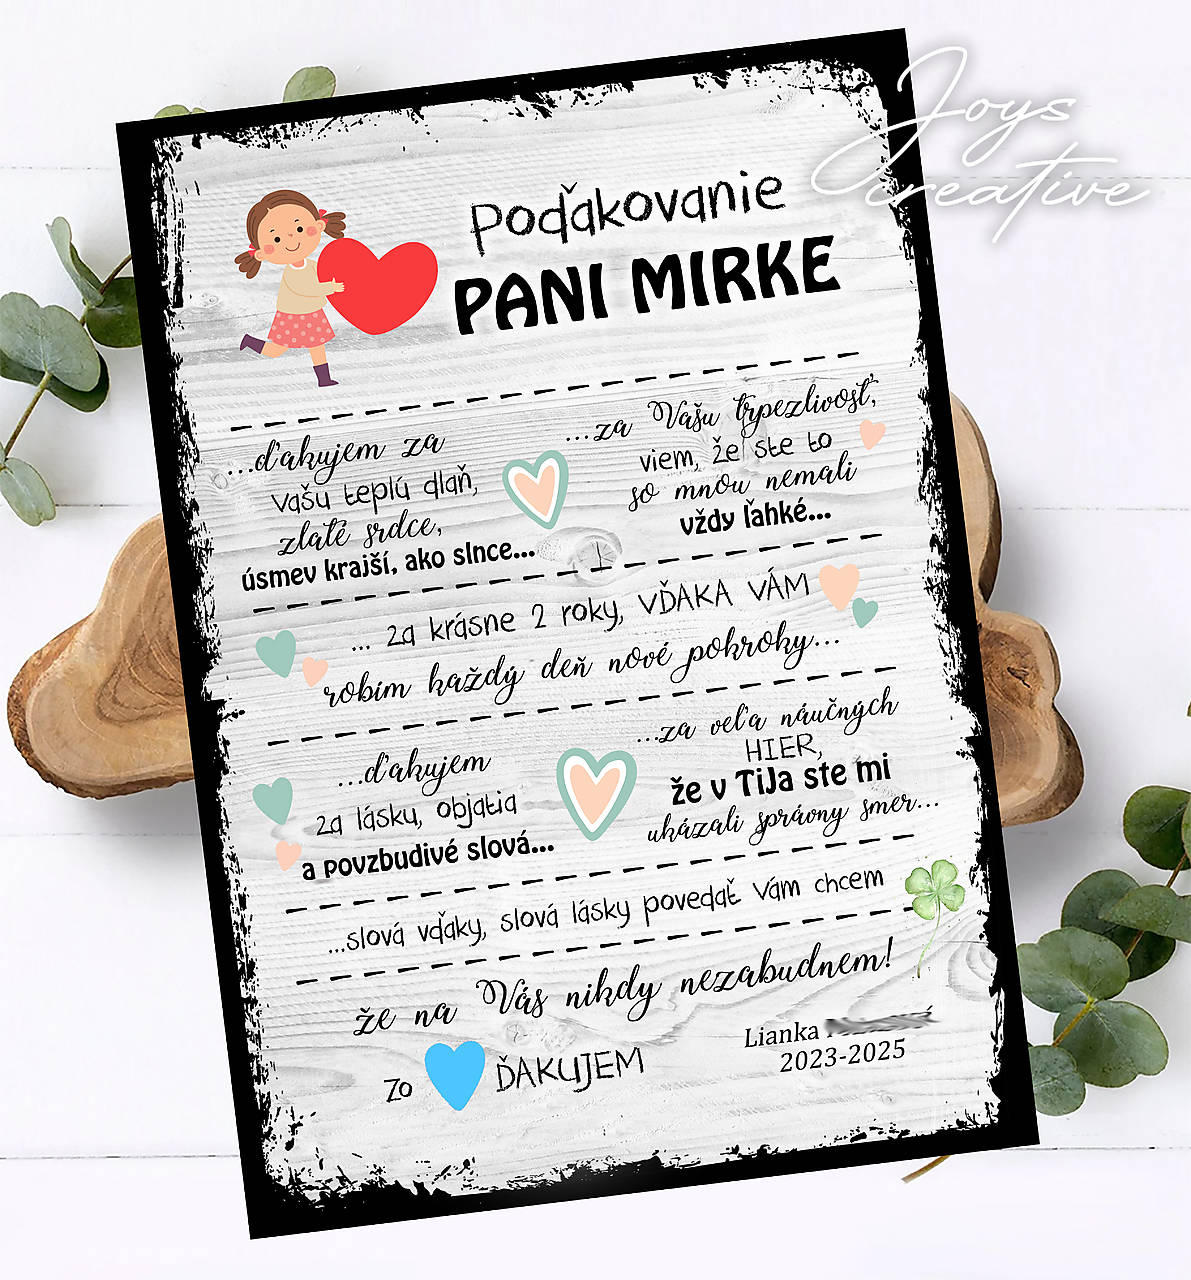 Joys
creative
Poďakovanie
PANI MIRKE
...ďakujem za
Vašu teplú dlaň,
zlaté srdce,
úsmev krajší, ako slnce...
...za Vašu trpezlivosť,
viem, že ste to
so mnou nemali
vždy ľahké...
... za krásne 2 roky, VĎAKA VÁM
robím každý deň nové pokroky...
...ďakujem
za lásku, objatia
a povzbudivé slová...
...za veľa náučných
HIER,
že v TiJa ste mi
ukázali správny smer...
...slová vďaky, slová lásky povedať Vám chcem
že na Vás nikdy nezabudnem!
zo ĎAKUJEM
Lianka
2023-2025